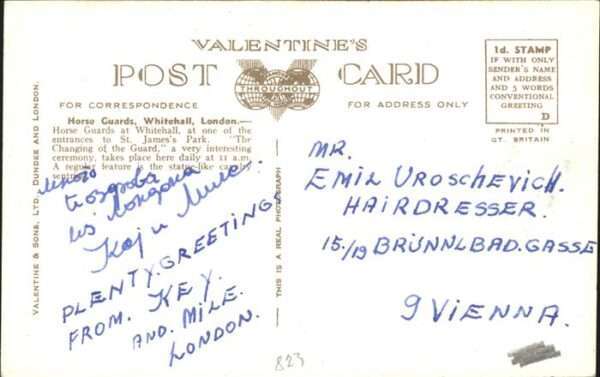 VALENTINE'S
POST CARD
THROUGHOUT
FOR CORRESPONDENCE
FOR ADDRESS ONLY
1d. STAMP
IF WITH ONLY
SENDER'S NAME
AND ADDRESS
AND 5 WORDS
CONVENTIONAL
GREETING
D
PRINTED IN
GT. BRITAIN
VALENTINE & SONS, LTD., DUNDEE AND LONDON.
Horse Guards, Whitehall, London.—
Horse Guards at Whitehall, at one of the
entrances to St. James's Park. "The
Changing of the Guard," a very interesting
ceremony, takes place here daily at 11 a.m.
A regular feature is the statue-like cavalry
Много
поздрава
из Лондона
Кај и Миле.
PLENTY.GREETINGS
FROM. KEY.
AND. MILE.
LONDON.
THIS IS A REAL PHOTOGRAPH
MR.
EMIL UROSCHEVICH.
HAIRDRESSER.
15./19 BRÜNNLBAD.GASSE
9 VIENNA.
823